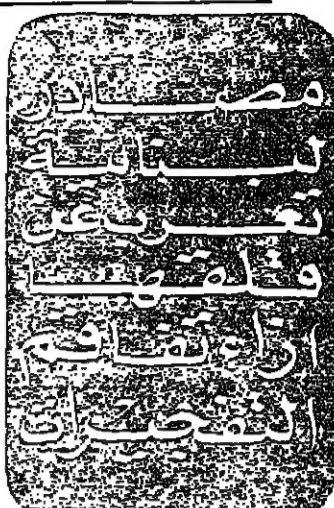 مصادر
لبنانية
تعرب عن
قلقها
ازاء تفاقم
التفجيرات